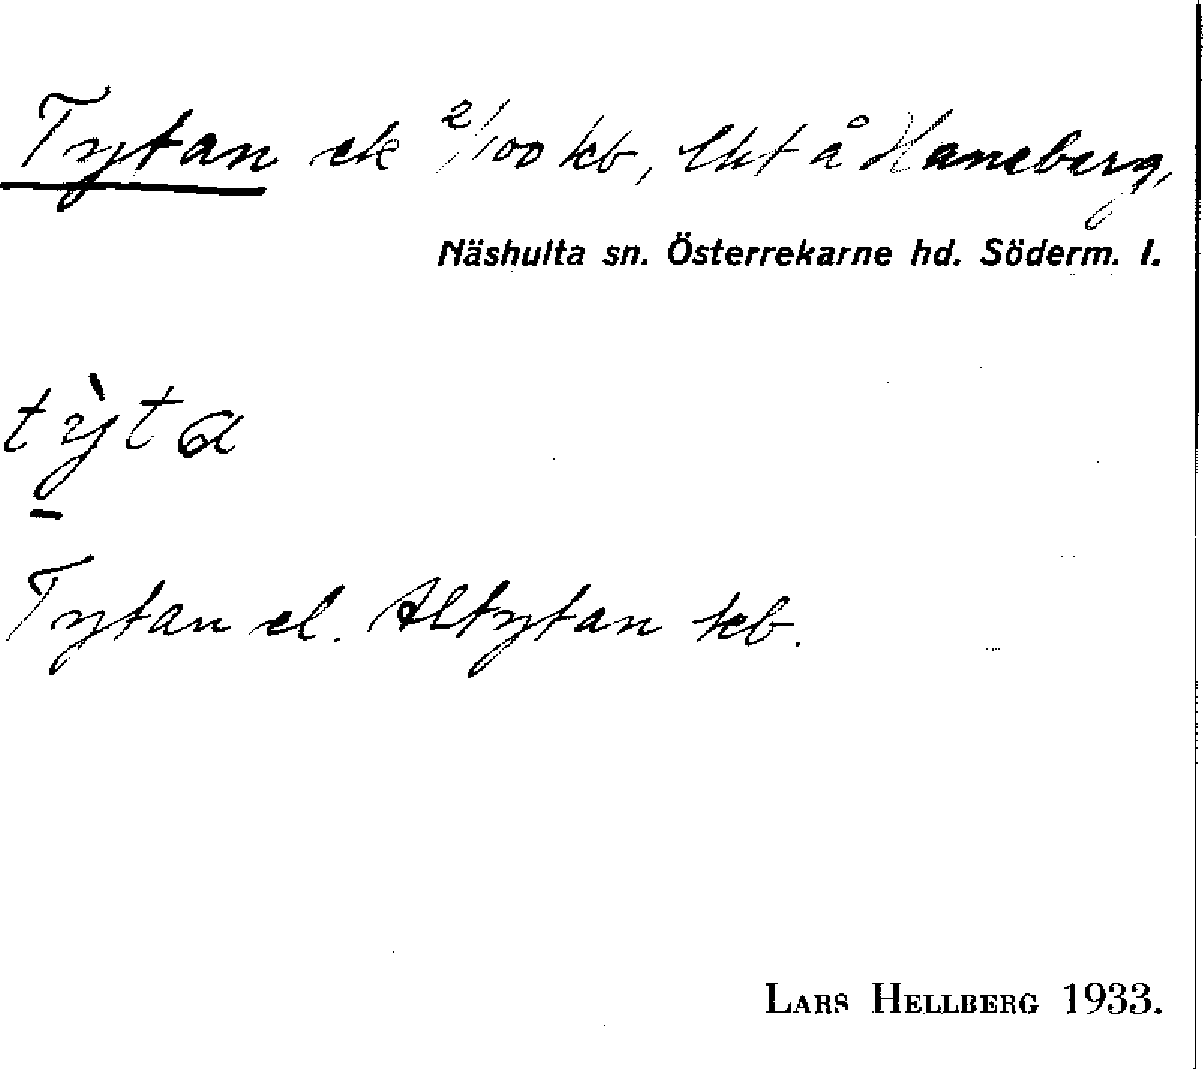 Tytan ek 2/100 kb, lht å Haneberg,
Näshulta sn. Österrekarne hd. Söderm. l.
tỳta
Tytan el. Altytan kb.
LARS HELLBERG 1933.